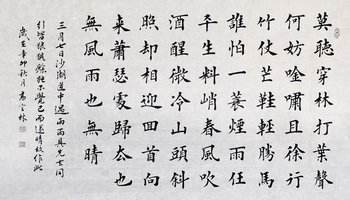 莫聽穿林打葉聲
何妨吟嘯且徐行
竹杖芒鞋輕勝馬
誰怕一蓑煙雨任
平生料峭春風吹
酒醒微冷山頭斜
照却相迎回首向
來蕭瑟處歸去也
無風雨也無晴
三月七日沙湖道中遇雨雨具先去同
行皆狼狽餘獨不覺已而遂晴故作此
辛卯秋月